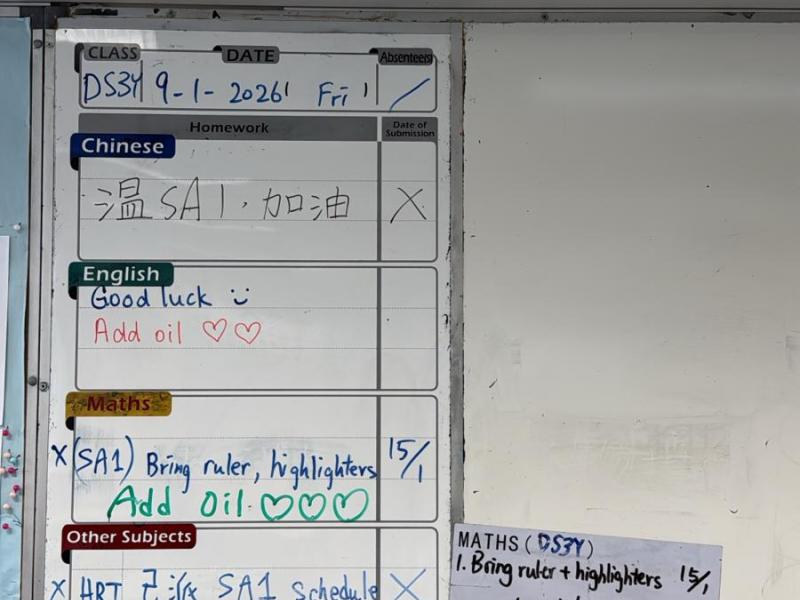 CLASS DATE Absentees
DS3Y 9-1-2026 Fri /
Homework Date of Submission
Chinese
温 SA1, 加油 X
English
Good luck
Add oil ♡♡
Maths
X (SA1) Bring ruler, highlighters 15/1
Add Oil ♡♡♡
Other Subjects
X HRT SA1 Schedule X
MATHS (DS3Y)
1. Bring ruler + highlighters 15/1